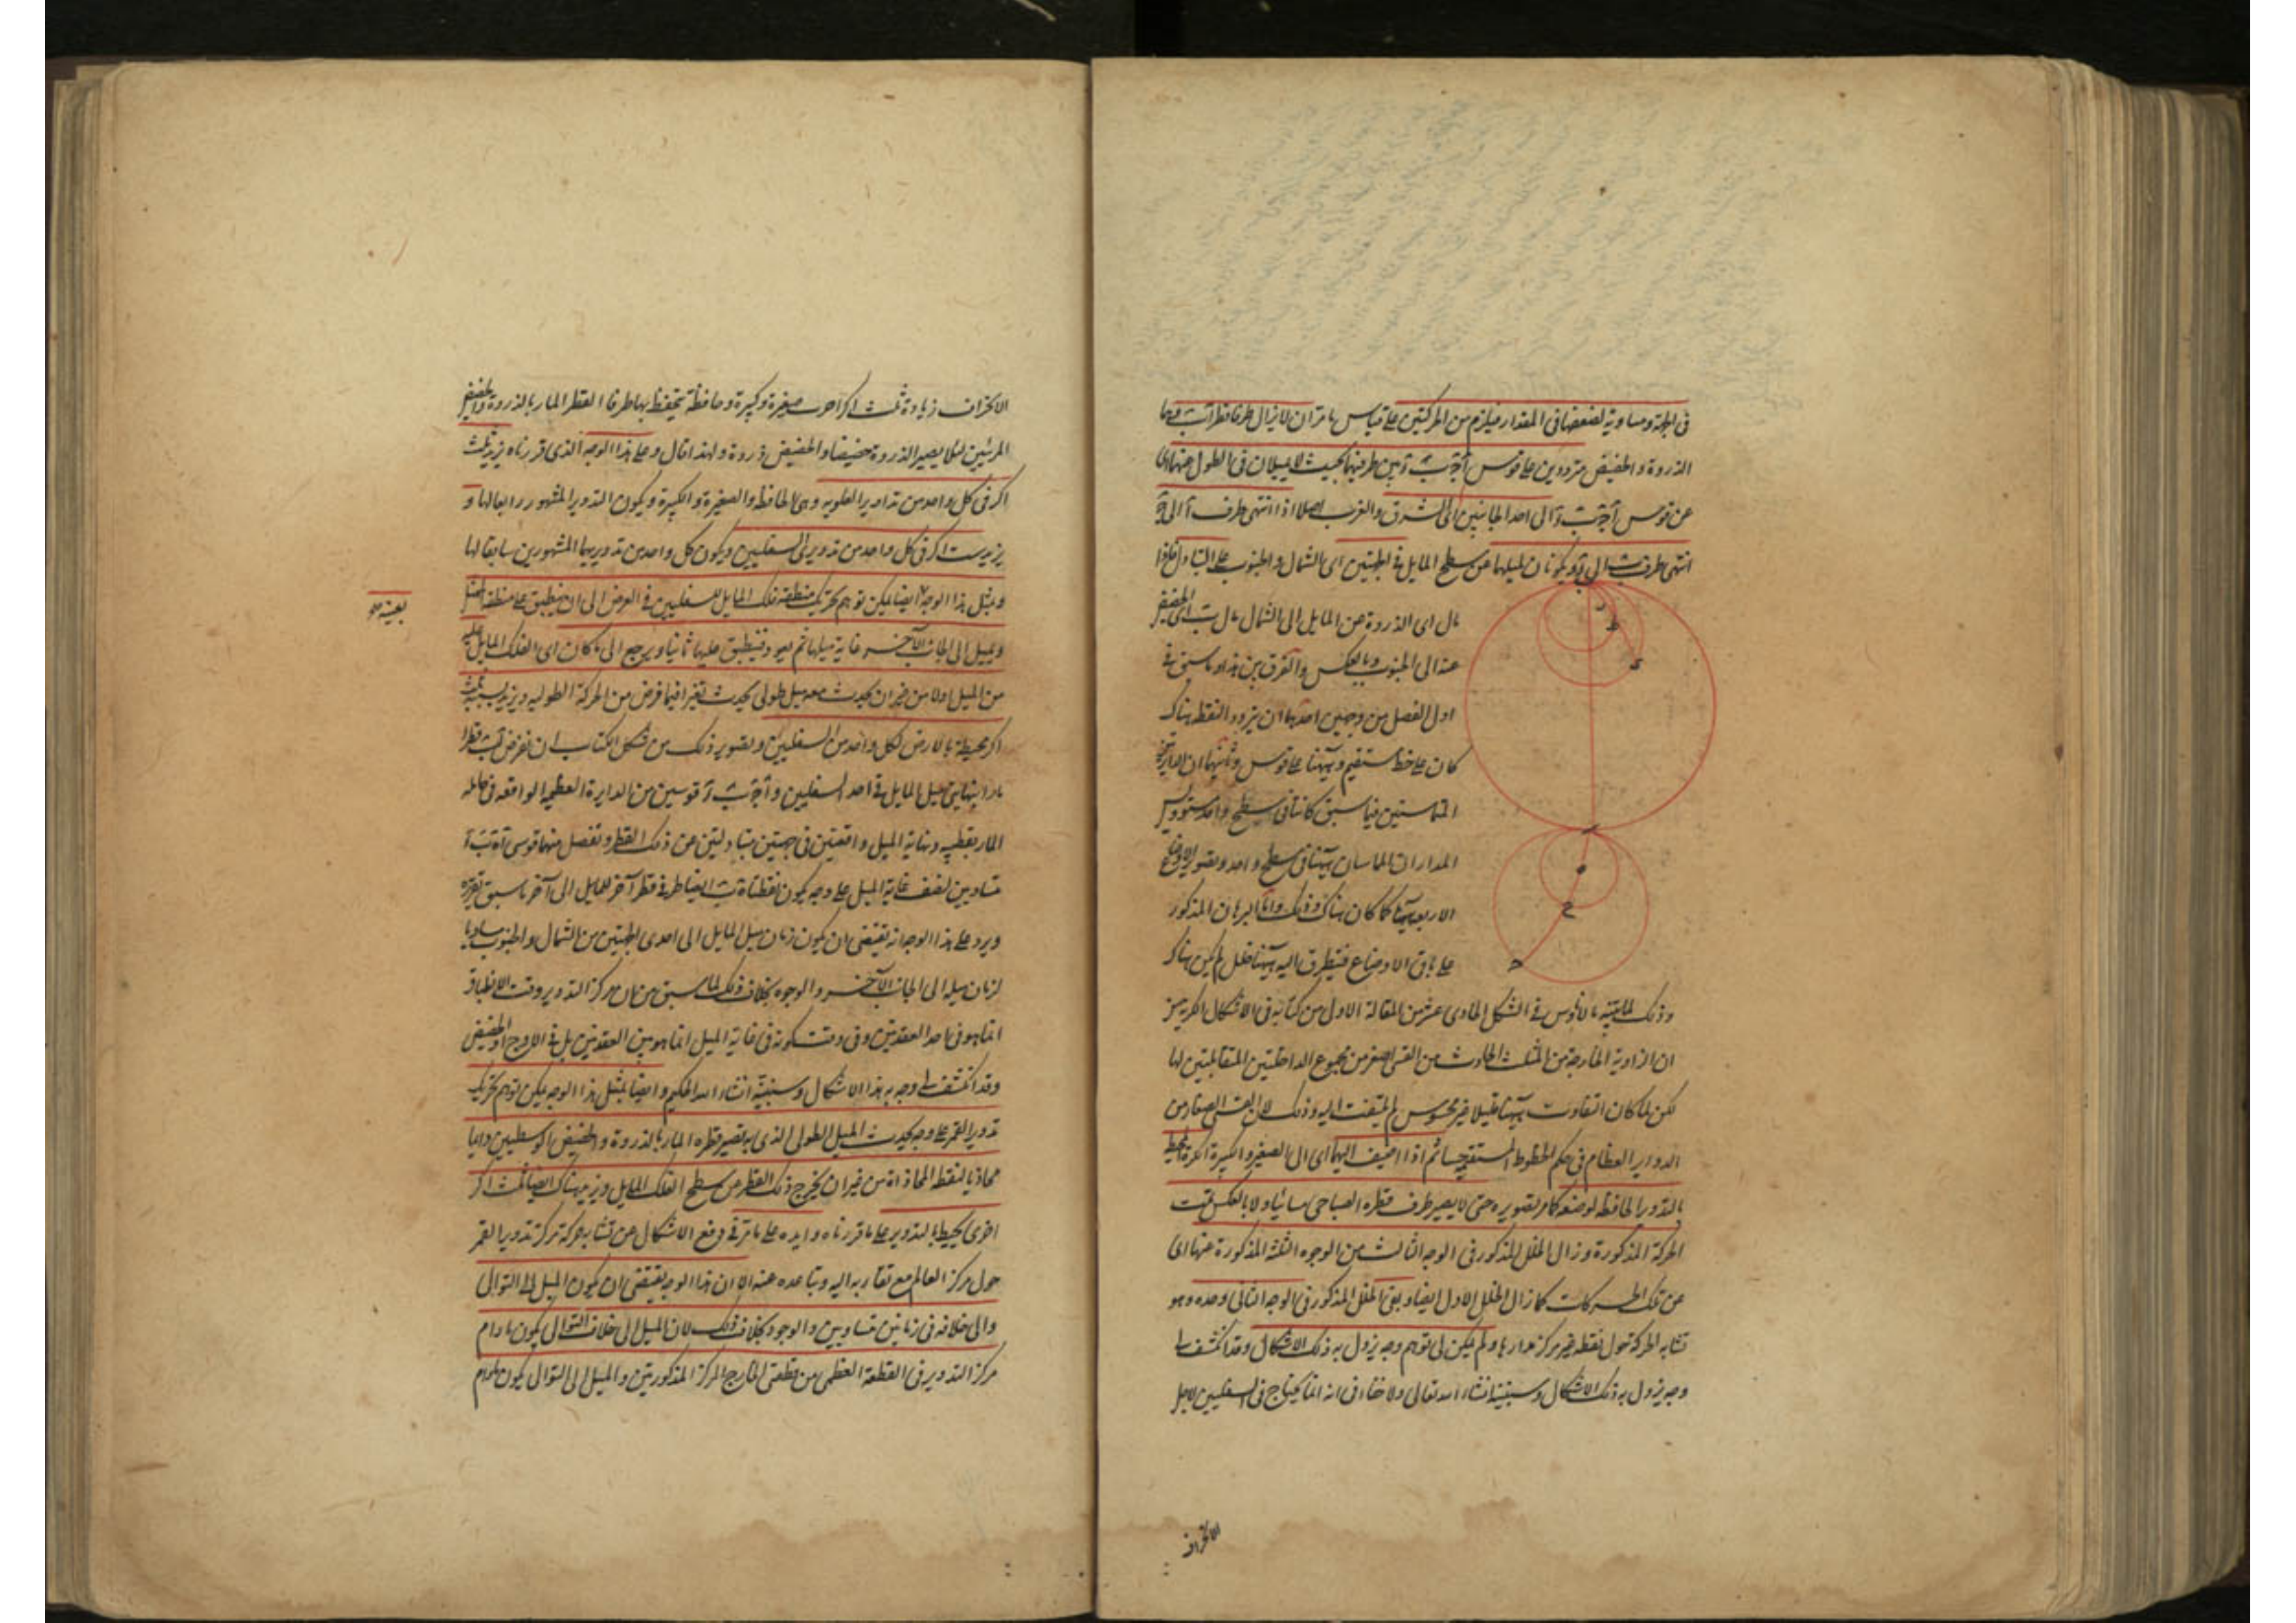 في الجهة ومساوية لضعفها في المقدار فيلزم من الحركتين على قياس ما مر ان لا يزال طرفا قطر اب وهما
الذروة والحضيض مترددين على قوس بين طرفيها بحيث لا يميلان في الطول عنها اى
عن قوس الى احد الجانبين اى الشرق والغرب اصلا اذا انتهى طرف آ الى
انتهى طرف ب الى ويكونان لميلها عن سطح المايل في الجهتين اى الشمال والجنوب على التبادل فاذا
مال اى الذروة عن المايل الى الشمال مال ب اى الحضيض
عنه الى الجنوب وبالعكس والفرق بين هذا وما سبق في
اول الفصل من وجهين احدهما ان تردد النقطة هناك
كان على خط مستقيم وههنا على قوس وثانيهما ان الدايرتين
المتماستين فيما سبق كانتا في سطح واحد مستو وليس
المداران المماسان ههنا في سطح واحد وتصوير الاوضاع
الاربعة ههنا كما كان هناك وكذلك واما البرهان المذكور
على باقى الاوضاع فيتطرق اليه ههنا خلل لم يكن هناك
وذلك لما بينه مانالاوس في الشكل الحادى عشر من المقالة الاولى من كتابه في الاشكال الكرية من
ان الزاوية الخارجة من المثلث الحادث من القسى اصغر من مجموع الداخلتين المتقابلتين لها
لكن لما كان التفاوت ههنا قليلا غير محسوس لم يلتفت اليه وذلك لان القسى الصغار من
الدواير العظام في حكم الخطوط المستقيمة حسا ثم اذا اضيف اليهما اى الى الصغيرة والكبيرة اكرة تحيط
بالتدوير الحافظة لوضعه كما مر تصويره حتى لا يصير طرف قطره الصباحى مسائيا ولا بالعكس تمت
الحركة المذكورة وزال الخلل المذكور في الوجه الثالث من الوجوه الثلثة المذكورة عنها اى
عن تلك الحركات كما زال الخلل الاول ايضا وبقى الخلل المذكور في الوجه الثانى وحده وهو
تشابه الحركة حول نقطة غير مركز مدارها ولم يكن لى توهم وجه يزول به ذلك الاشكال وقد انكشف لى
وجه يزول به ذلك الاشكال وسنبينه انشاء الله تعالى ولا خفاء في انه انما يحتاج في السفليين لاجل
الانحراف
الانحراف زيادة ثلث اكر اخرى صغيرة وكبيرة وحافظة يحفظ بها طرفا القطر المار بالذروة والحضيض
المرئيين لئلا يصير الذروة حضيضا والحضيض ذروة ولهذا قال وعلى هذا الوجه الذى قررناه يزيد ثلث
اكر في كل واحد من تداوير العلويه وهى الحافظة والصغيرة والكبيرة ويكون التدوير المشهور رابعا لها و
يزيد ست اكر في كل واحد من تدويرى السفليين ويكون كل واحد من تدويريهما المشهورين سابعا لها
وبمثل هذا الوجه ايضا يمكن توهم تحريك منطقة فلك المايل للسفليين في العرض الى ان ينطبق على منطقة الممثل
بعينه
ويميل الى الجانب الآخر غاية ميلها ثم يعود فينطبق عليها ثانيا ويرجع الى ما كان اى الفلك المايل عليه
من الميل اولا من غير ان يحدث معه ميل طولى يحدث تغيرا فيما فرض من الحركة الطولية ويزيد بسببه ثلث
اكر محيطة بالارض لكل واحد من السفليين وتصوير ذلك من شكل الكتاب ان نفرض اب قطرا
مارا بنهايتى ميل المايل في احد السفليين و قوسين من الدايرة العظيمة الواقعة في حامله
المار بقطبيه ونهاية الميل واقعتين في جهتين متبادلتين عن ذلك القطر ونفصل منهما قوسى
متساويين لنصف غاية الميل على وجه يكون نقطتاه ايضا طرفى قطر آخر للمايل الى آخر ما سبق تقريره
ويرد على هذا الوجه انه يقتضى ان يكون زمان ميل المايل الى احدى الجهتين من الشمال والجنوب مساويا
لزمان ميله الى الجانب الآخر والوجود بخلاف ذلك لما سبق من ان مركز التدوير وقت الانطباق
انما هو في احد العقدتين وفي وقت كونه في غاية الميل انما هو بين العقدتين بل في الاوج او الحضيض
وقد انكشف لى وجه به هذا الاشكال وسنبينه انشاء الله الحكيم وايضا بمثل هذا الوجه يمكن توهم تحريك
تدوير القمر على وجه يحدث الميل الطولى الذى به يصير قطره المار بالذروة والحضيض الوسطيين دايما
محاذيا لنقطة المحاذاة من غير ان يخرج ذلك القطر من سطح الفلك المايل ويزيد هناك ايضا ثلث اكر
اخرى يحيط بالتدوير على ما قررناه وايده على ما مر في دفع الاشكال عن تشابه حركة مركز تدوير القمر
حول مركز العالم مع تقاربه اليه وتباعده عنه الا ان هذا الوجه يقتضى ان يكون الميل الى التوالى
والى خلافه في زمانين متساويين والوجود بخلاف ذلك لان الميل الى خلاف التوالى يكون ما دام
مركز التدوير في القطعة العظمى من قطعتى الخارج المركز المذكورتين والميل الى التوالى يكون ما دام